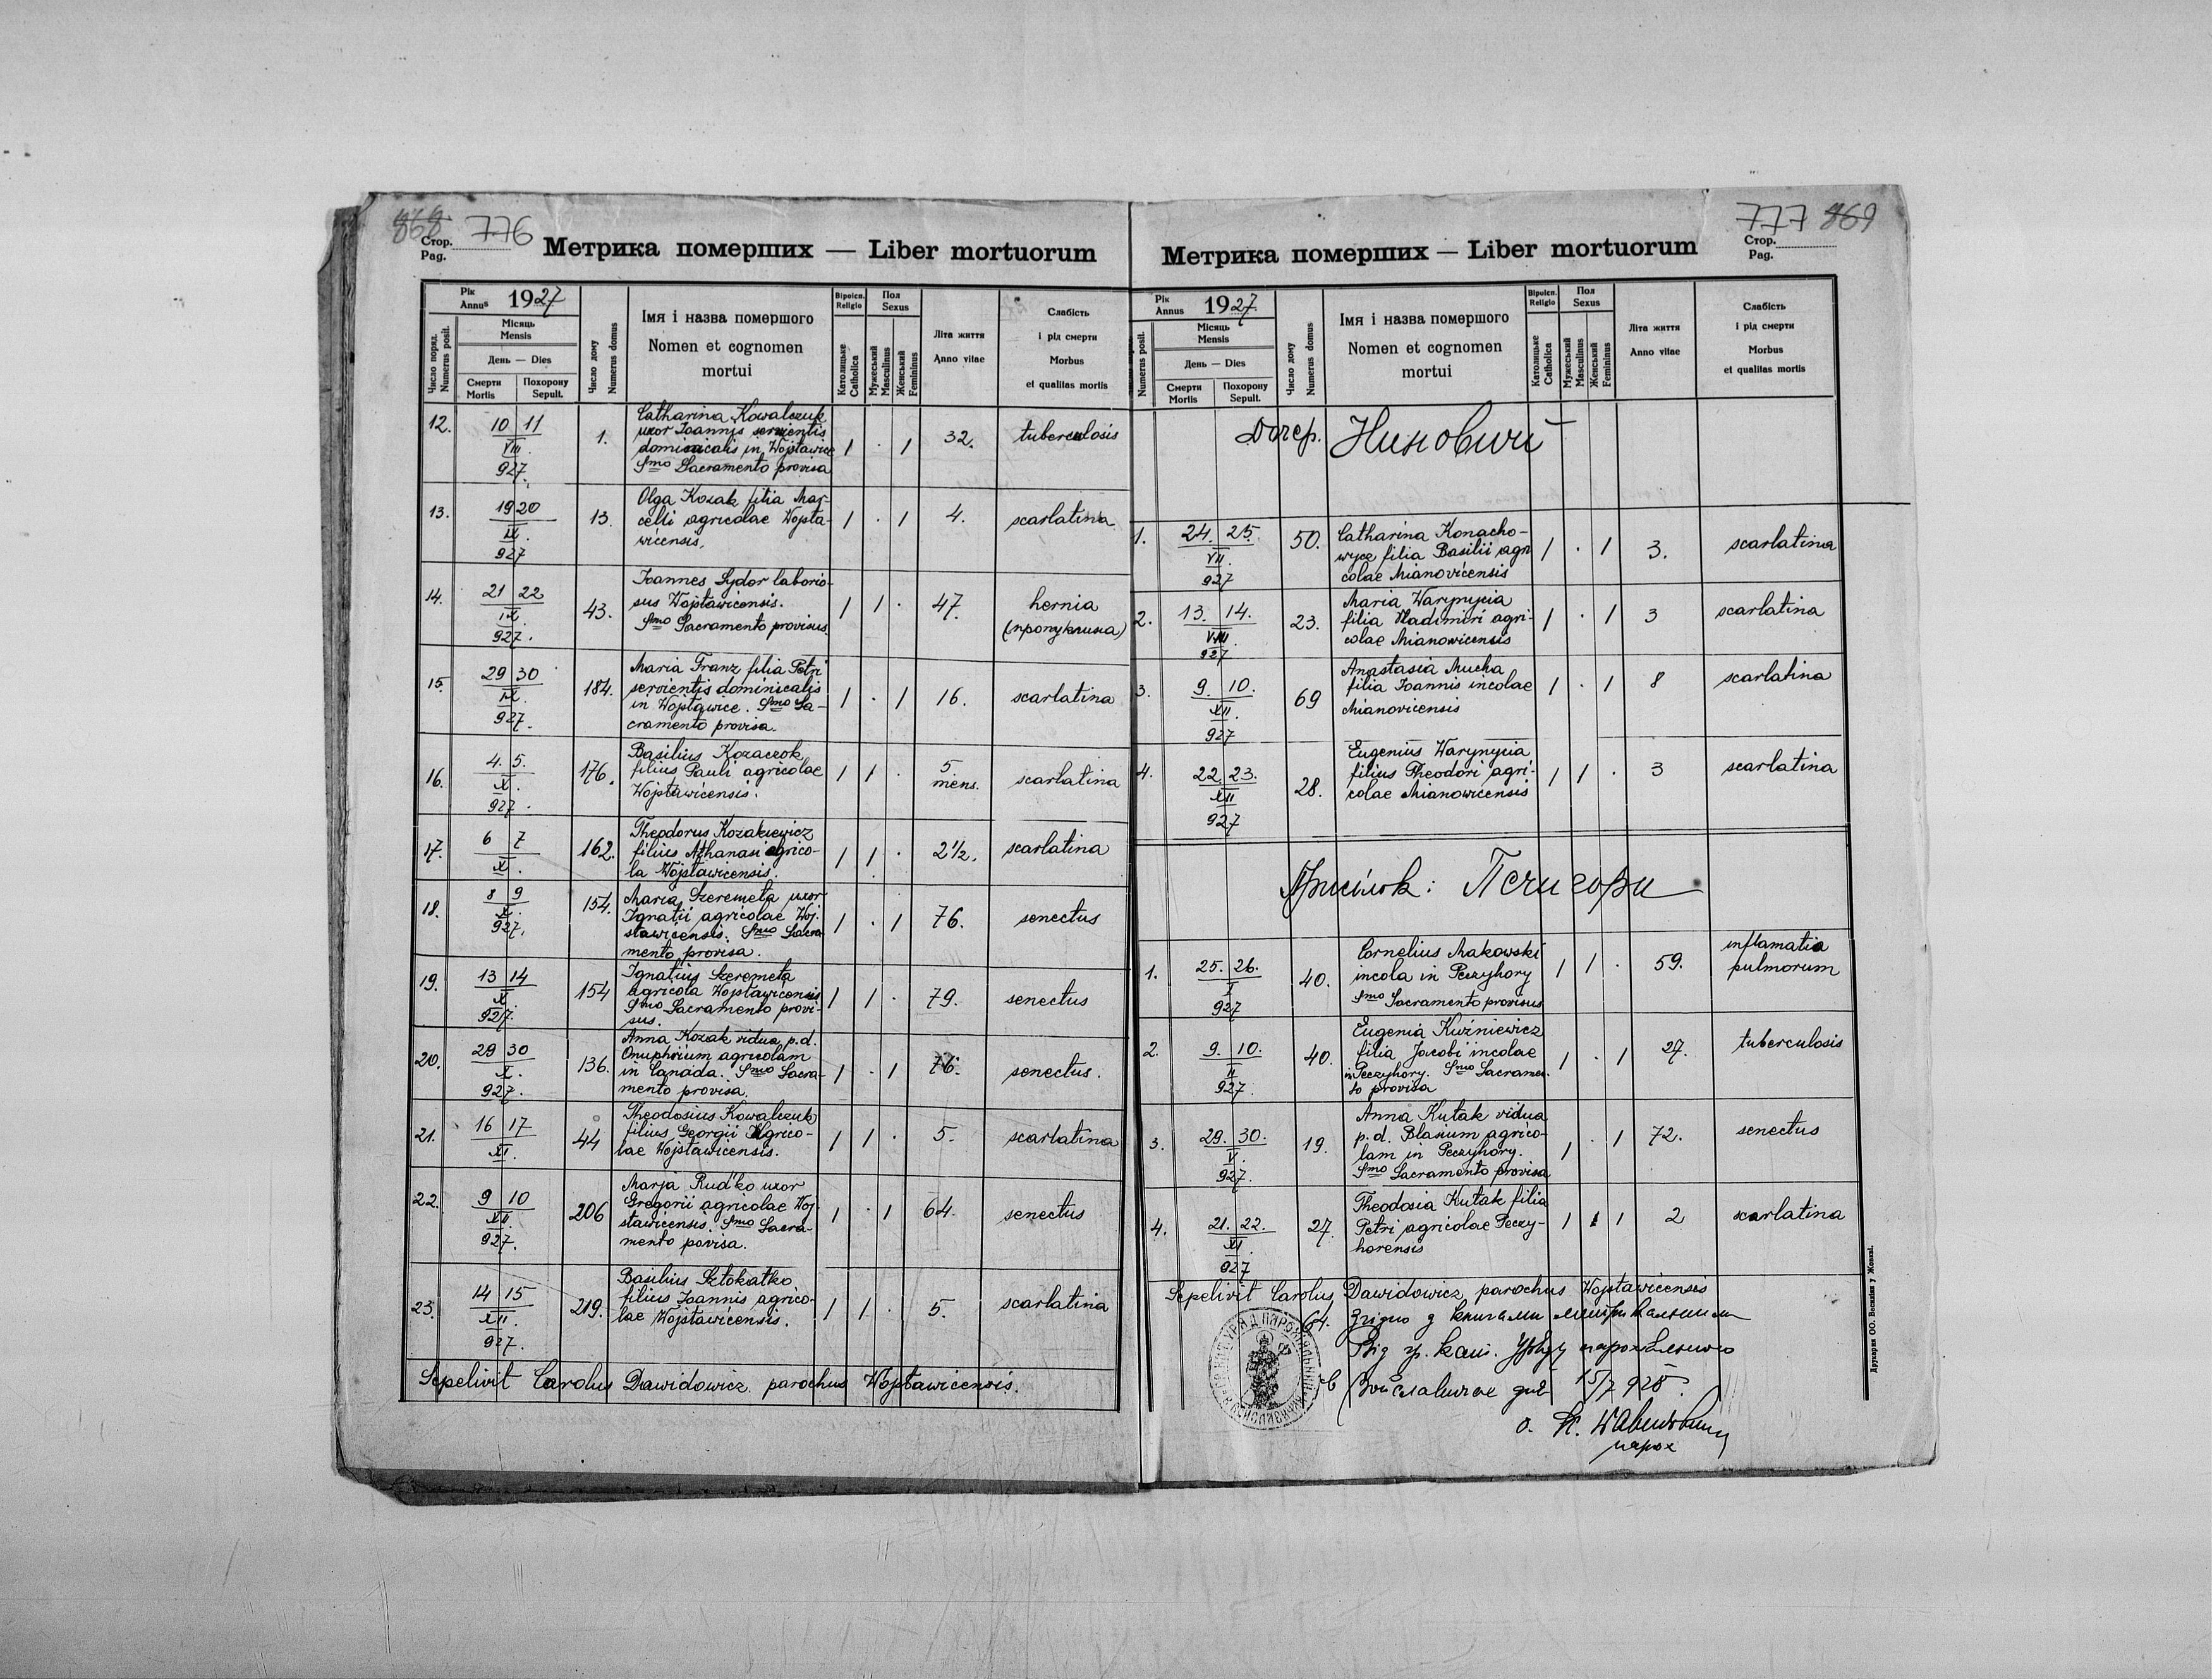 868
Стор. 776
Pag.
Метрика померших — Liber mortuorum
Рік
Annus 1927
Число поряд.
Numerus posit.
Місяць
Mensis
День — Dies
Смерти
Mortis
Похорону
Sepult.
Число дому
Numerus domus
Імя і назва помершого
Nomen et cognomen
mortui
Віроісп.
Religio
Католицьке
Catholica
Пол
Sexus
Мужеський
Masculinus
Женський
Femininus
Літа життя
Anno vitae
Слабість
і рід смерти
Morbus
et qualitas mortis
12. 10 11 VIII. 927. 1. Catharina Kowalczuk 1 · 1 32. tuberculosis
uxor Joannis servientis
dominicalis in Wojsławice
Smo Sacramento provisa
13. 19 20 IX. 927 13. Olga Kozak filia Mar- 1 · 1 4. scarlatina
celli agricolae Wojsła-
wicensis.
14. 21 22 IX. 927. 43. Joannes Sydor laborio- 1 1 · 47. hernia
sus Wojsławicensis. (пропуклина)
Smo Sacramento provisus.
15. 29 30 IX. 927. 184. Maria Franz filia Petri 1 · 1 16. scarlatina
servientis dominicalis
in Wojsławice. Smo Sa-
cramento provisa.
16. 4. 5. X. 927. 176. Basilius Kozaczok 1 1 · 5 mens. scarlatina
filius Pauli agricolae
Wojsławicensis.
17. 6 7 X. 162. Theodorus Kozakiewicz 1 1 · 2 1/2. scarlatina
filius Athanasi agrico-
la Wojsławicensis.
18. 8 9 X. 927. 154. Maria Szeremeta uxor 1 · 1 76. senectus
Ignatii agricolae Woj-
sławicensis. Smo Sacra-
mento provisa.
19. 13 14 X. 927. 154 Ignatius Szeremeta 1 1 · 79. senectus
agricola Wojsławicensis
Smo Sacramento provi-
sus.
20. 29 30 X. 927. 136. Anna Kozak vidua p.d. 1 · 1 76. senectus.
Onuphrium agricolam
in Canada. Smo Sacra-
mento provisa.
21. 16 17 XI. 44 Theodosius Kowalczuk 1 1 · 5. scarlatina
filius Georgii Agrico-
lae Wojsławicensis.
22. 9 10 XII. 927. 206 Marja Rud'ko uxor 1 · 1 64. senectus
Gregorii agricolae Woj-
sławicensis. Smo Sacra-
mento povisa.
23. 14 15 XII. 927. 219. Basilius Sztokałko 1 1 · 5. scarlatina
filius Joannis agrico-
lae Wojsławicensis.
Sepelivit Carolus Dawidowicz parochus Wojsławicensis.
777 869
Стор.
Pag.
Метрика померших — Liber mortuorum
Рік
Annus 1927.
Numerus posit.
Місяць
Mensis
День — Dies
Смерти
Mortis
Похорону
Sepult.
Число дому
Numerus domus
Імя і назва помершого
Nomen et cognomen
mortui
Віроісп.
Religio
Католицьке
Catholica
Пол
Sexus
Мужеський
Masculinus
Женський
Femininus
Літа життя
Anno vitae
Слабість
і рід смерти
Morbus
et qualitas mortis
Дочер.
1. 24. 25. VII. 927 50. Catharina Konacho- 1 · 1 3. scarlatina
wycz filia Basilii agri
colae Mianovicensis
2. 13. 14. VIII. 927 23. Maria Warynycia 1 · 1 3 scarlatina
filia Vladimiri agri-
colae Mianowicensis
3. 9. 10. XII. 927 69 Anastasia Mucha 1 · 1 8 scarlatina
filia Joannis incolae
Mianovicensis
4. 22. 23. XII 927 28. Eugenius Warynycia 1 1 · 3 scarlatina
filius Theodori agri-
colae Mianowicensis
Присілок: Печигори
1. 25. 26. I 927 40. Cornelius Makowski 1 1 · 59. inflamatia
incola in Peczyhory pulmorum
Smo Sacramento provisus
2. 9. 10. II 927 40. Eugenia Kuźniewicz 1 · 1 27. tuberculosis
filia Jacobi incolae
in Peczyhory. Smo Sacramen-
to provisa
3. 29. 30. V. 927. 19. Anna Kutak vidua 1 · 1 72. senectus
p.d. Blasium agrico-
lam in Peczyhory.
Smo Sacramento provisa
4. 21. 22. XI. 927 27. Theodosia Kutak filia 1 1 1 2 scarlatina
Petri agricolae Peczy-
horensis
Sepelivit Carolus Dawidowicz parochus Wojsławicensis
Згідно з книгами метрикальними
Від гр. кат. Уряду парохіяльного
Войславичае дня 15/7 928.
парох
Друкарня ОО. Василіян у Жовкві.